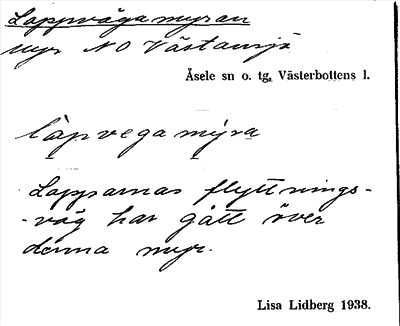 Lappvägamyran
myr NO Västansjö
Åsele sn o. tg, Västerbottens l.
làpvegamýra
Lapparnas flyttnings-
-väg har gått över
denna myr.
Lisa Lidberg 1938.